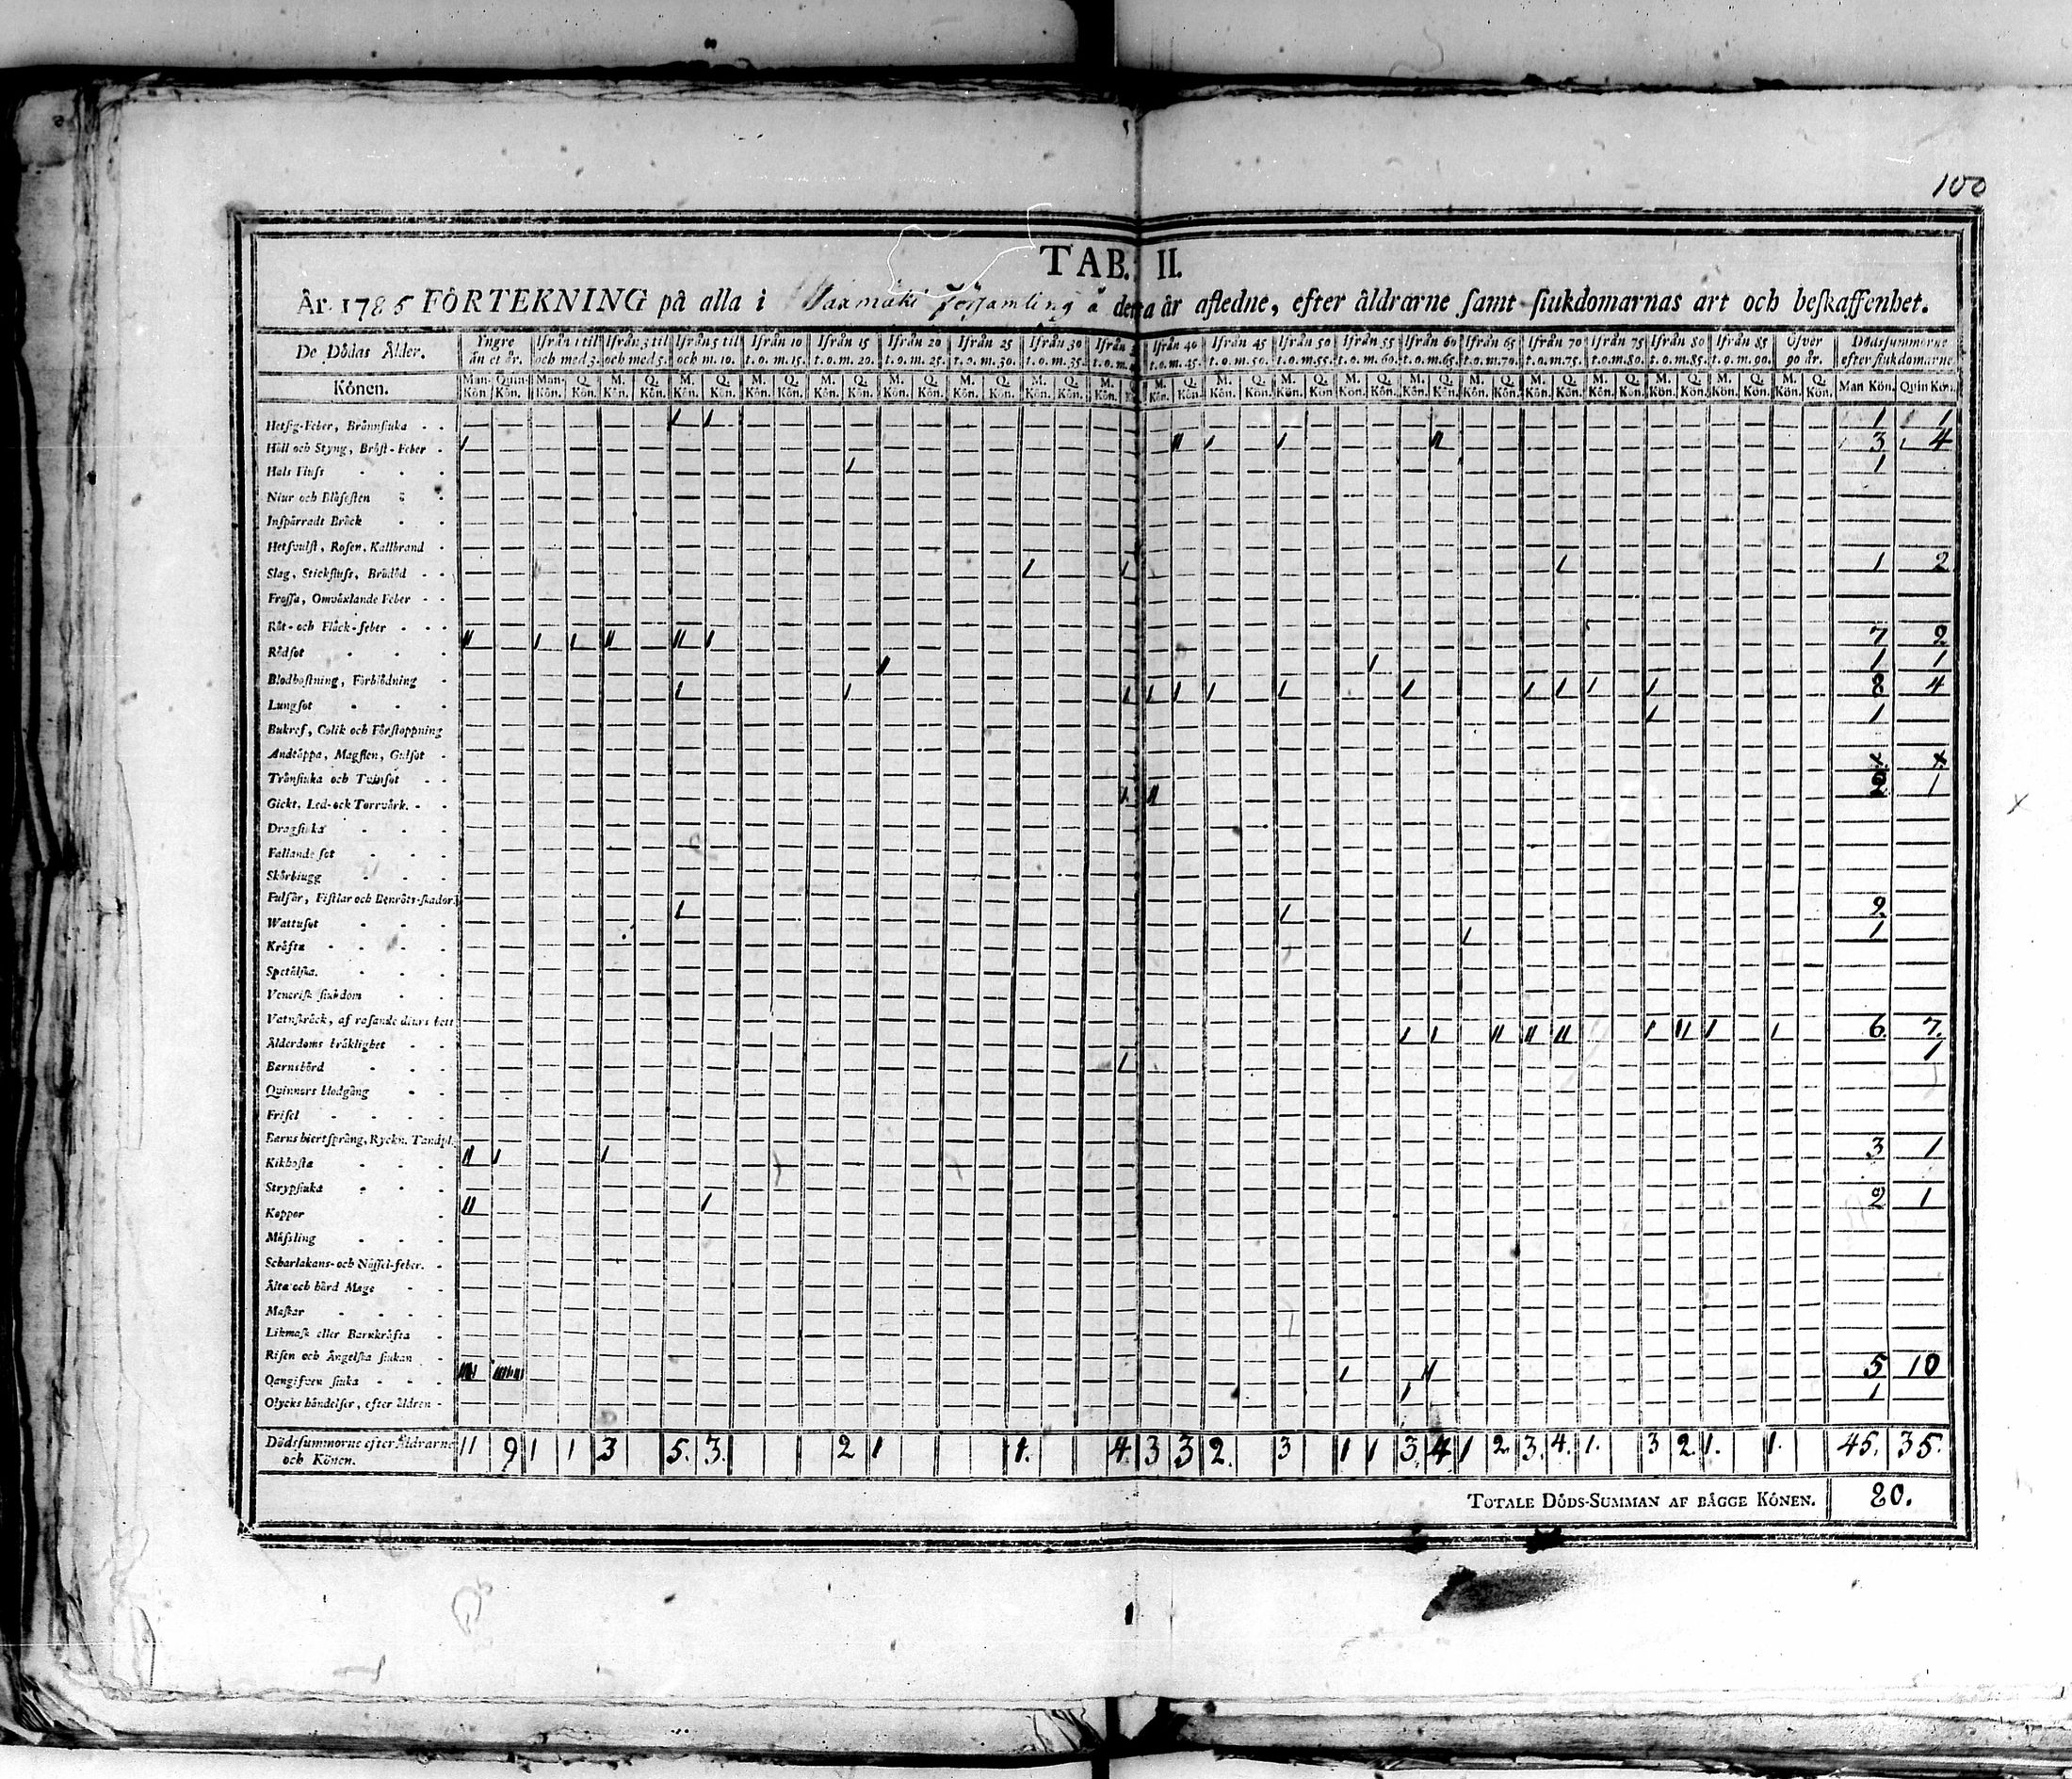 100
TAB. II.
År 1785 FÖRTEKNING på alla i Församling å detta år afledne, efter åldrarne samt siukdomarnas art och beskaffenhet.
De Dödas Ålder. Yngre än et år. Ifrån 1 til och med 3. Ifrån 3 til och med 5. Ifrån 5 til och m. 10. Ifrån 10 t.o.m. 15. Ifrån 15 t.o.m. 20. Ifrån 20 t.o.m. 25. Ifrån 25 t.o.m. 30. Ifrån 30 t.o.m. 35. Ifrån t.o.m. Ifrån 40 t.o.m. 45. Ifrån 45 t.o.m. 50. Ifrån 50 t.o.m. 55. Ifrån 55 t.o.m. 60. Ifrån 60 t.o.m. 65. Ifrån 65 t.o.m. 70. Ifrån 70 t.o.m. 75. Ifrån 75 t.o.m. 80. Ifrån 80 t.o.m. 85. Ifrån 85 t.o.m. 90. Öfver 90 år. Dödssummorne efter siukdomarne
Könen. Man-Kön Quin-Kön Man-Kön. Q. Kön. M. Kön. Q. Kön. M. Kön. Q. Kön. M. Kön. Q. Kön. M. Kön. Q. Kön. M. Kön. Q. Kön. M. Kön. Q. Kön. M. Kön. Q. Kön. M. Kön. M. Kön. Q. Kön. M. Kön. Q. Kön. M. Kön. Q. Kön. M. Kön. Q. Kön. M. Kön. Q. Kön. M. Kön. Q. Kön. M. Kön. Q. Kön. M. Kön. Q. Kön. M. Kön. Q. Kön. M. Kön. Q. Kön. M. Kön. Q. Kön. Man Kön. Quin Kön.
Hetsig-Feber, Brännsiuka 1 1 1 1
Håll och Styng, Bröst-Feber 1 11 1 1 11 3 4
Hals Fluss 1 1
Niur och Blåsesten
Inspärradt Bråck
Hetsvulst, Rosen, Kallbrand
Slag, Stickfluss, Brådöd 1 1 1 1 2
Frossa, Omväxlande Feber
Röt- och Fläck-feber 11 1 1 11 11 1 7 2
Rödsot 11 1 1 1
Blodhostning, Förblödning 1 1 1 1 1 1 1 1 1 1 1 1 8 4
Lungsot 1 1
Bukref, Colik och Förstoppning
Andtäppa, Magsten, Gulsot
Trånsiuka och Tvinsot
Gickt, Led- ock Torrvärk. 1 11 2 1
Dragsiuka
Fallande sot
Skörbiugg
Fulsår, Fistlar och Benröts-skador
Wattusot 1 1 2
Kräfta 1 1
Spetälska.
Venerisk siukdom
Vatuskräck, af rasande diurs bett
Ålderdoms bräklighet 1 1 11 11 11 1 11 1 1 6. 7.
Barnsbörd 1 1
Quinnors blodgång
Frisel
Barns hiertsprång, Ryckn. Tandpl.
Kikhosta 11 1 1 3 1
Strypsiuka
Koppor 11 1 2 1
Mässling
Scharlakans- och Nässel-feber.
Älta och hård Mage
Maskar
Likmask eller Barnkräfta
Risen och Ängelska siukan
Oangifven siuka 1 5 10
Olycks händelser, efter åldren 1 1
Dödssummorne efter Åldrarne och Könen. 11 9 1 1 3 5. 3. 2 1 1. 4. 3 3 2. 3 1 1 3 4 1 2 3. 4. 1. 3 2 1. 1. 45. 35.
TOTALE DÖDS-SUMMAN AF BÄGGE KÖNEN. 80.